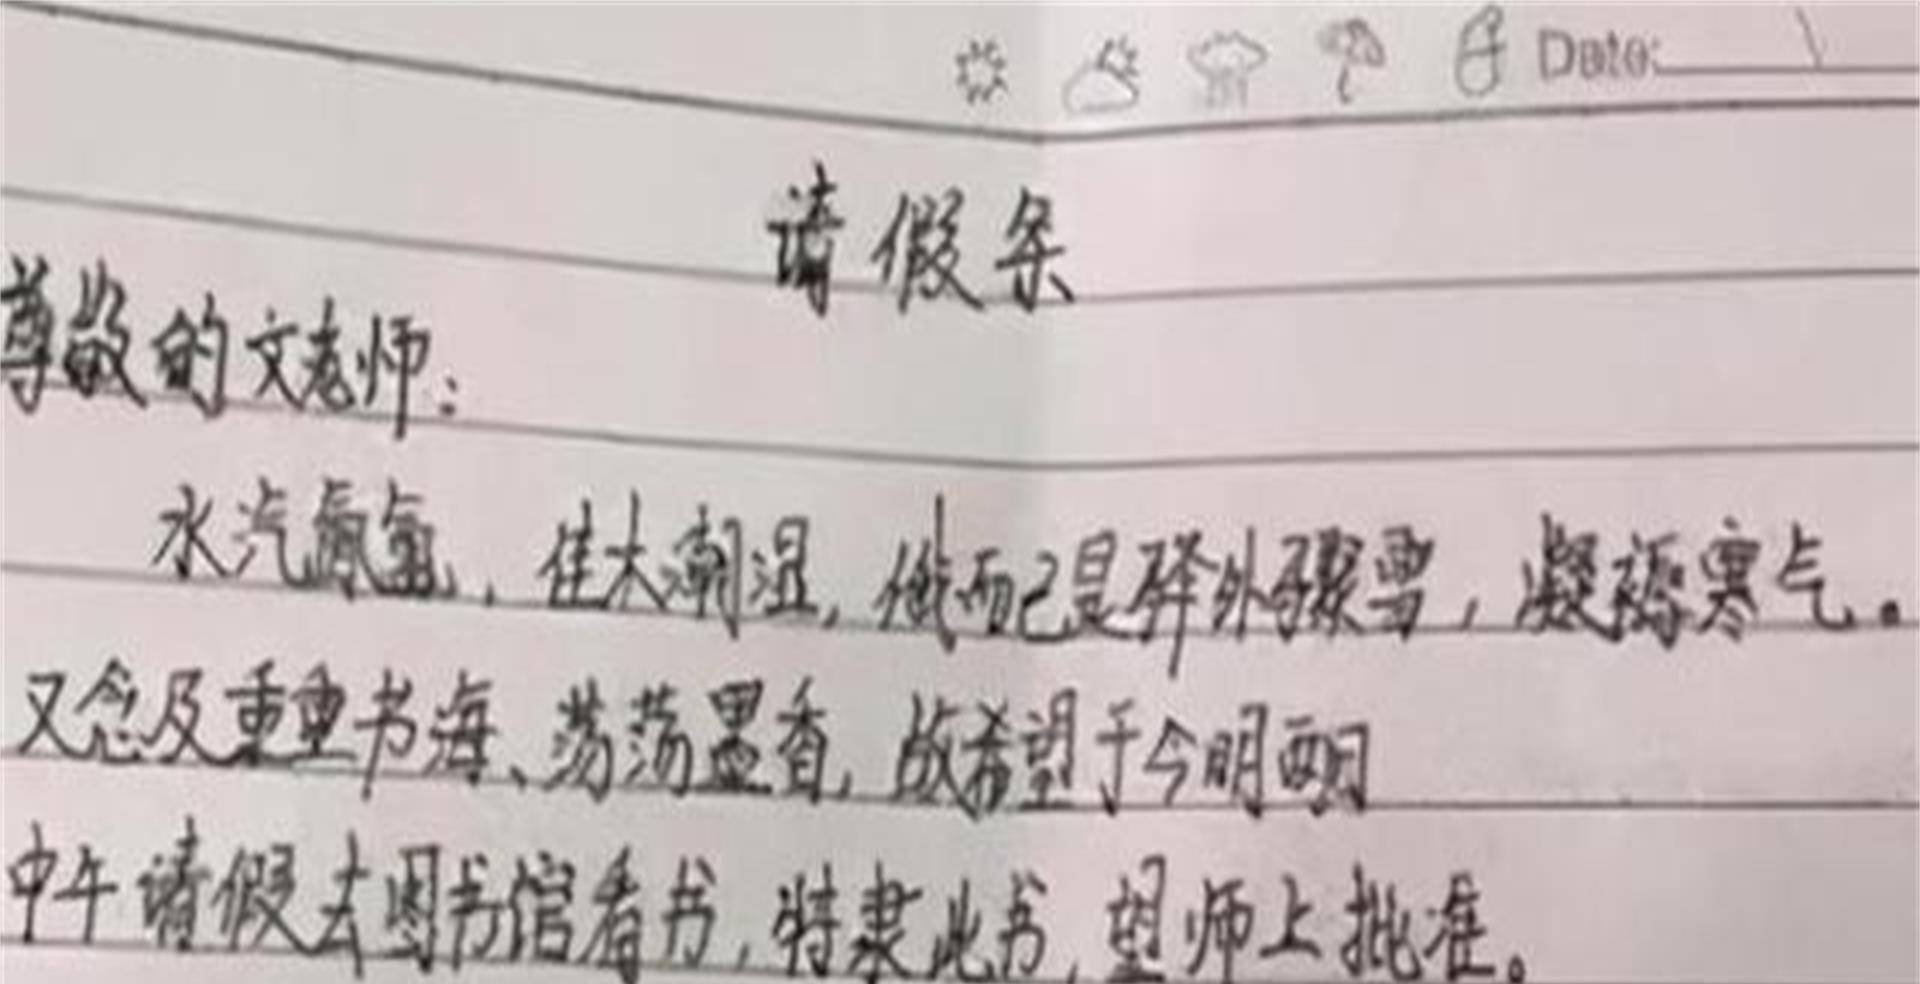 Date:
请假条
尊敬的文老师：
水汽氤氲，佳木潮湿，俄而已是驿外骤雪，凝福寒气。
又念及重重书海、荡荡墨香，故希望于今明两日
中午请假去图书馆看书，特隶此书，望师上批准。